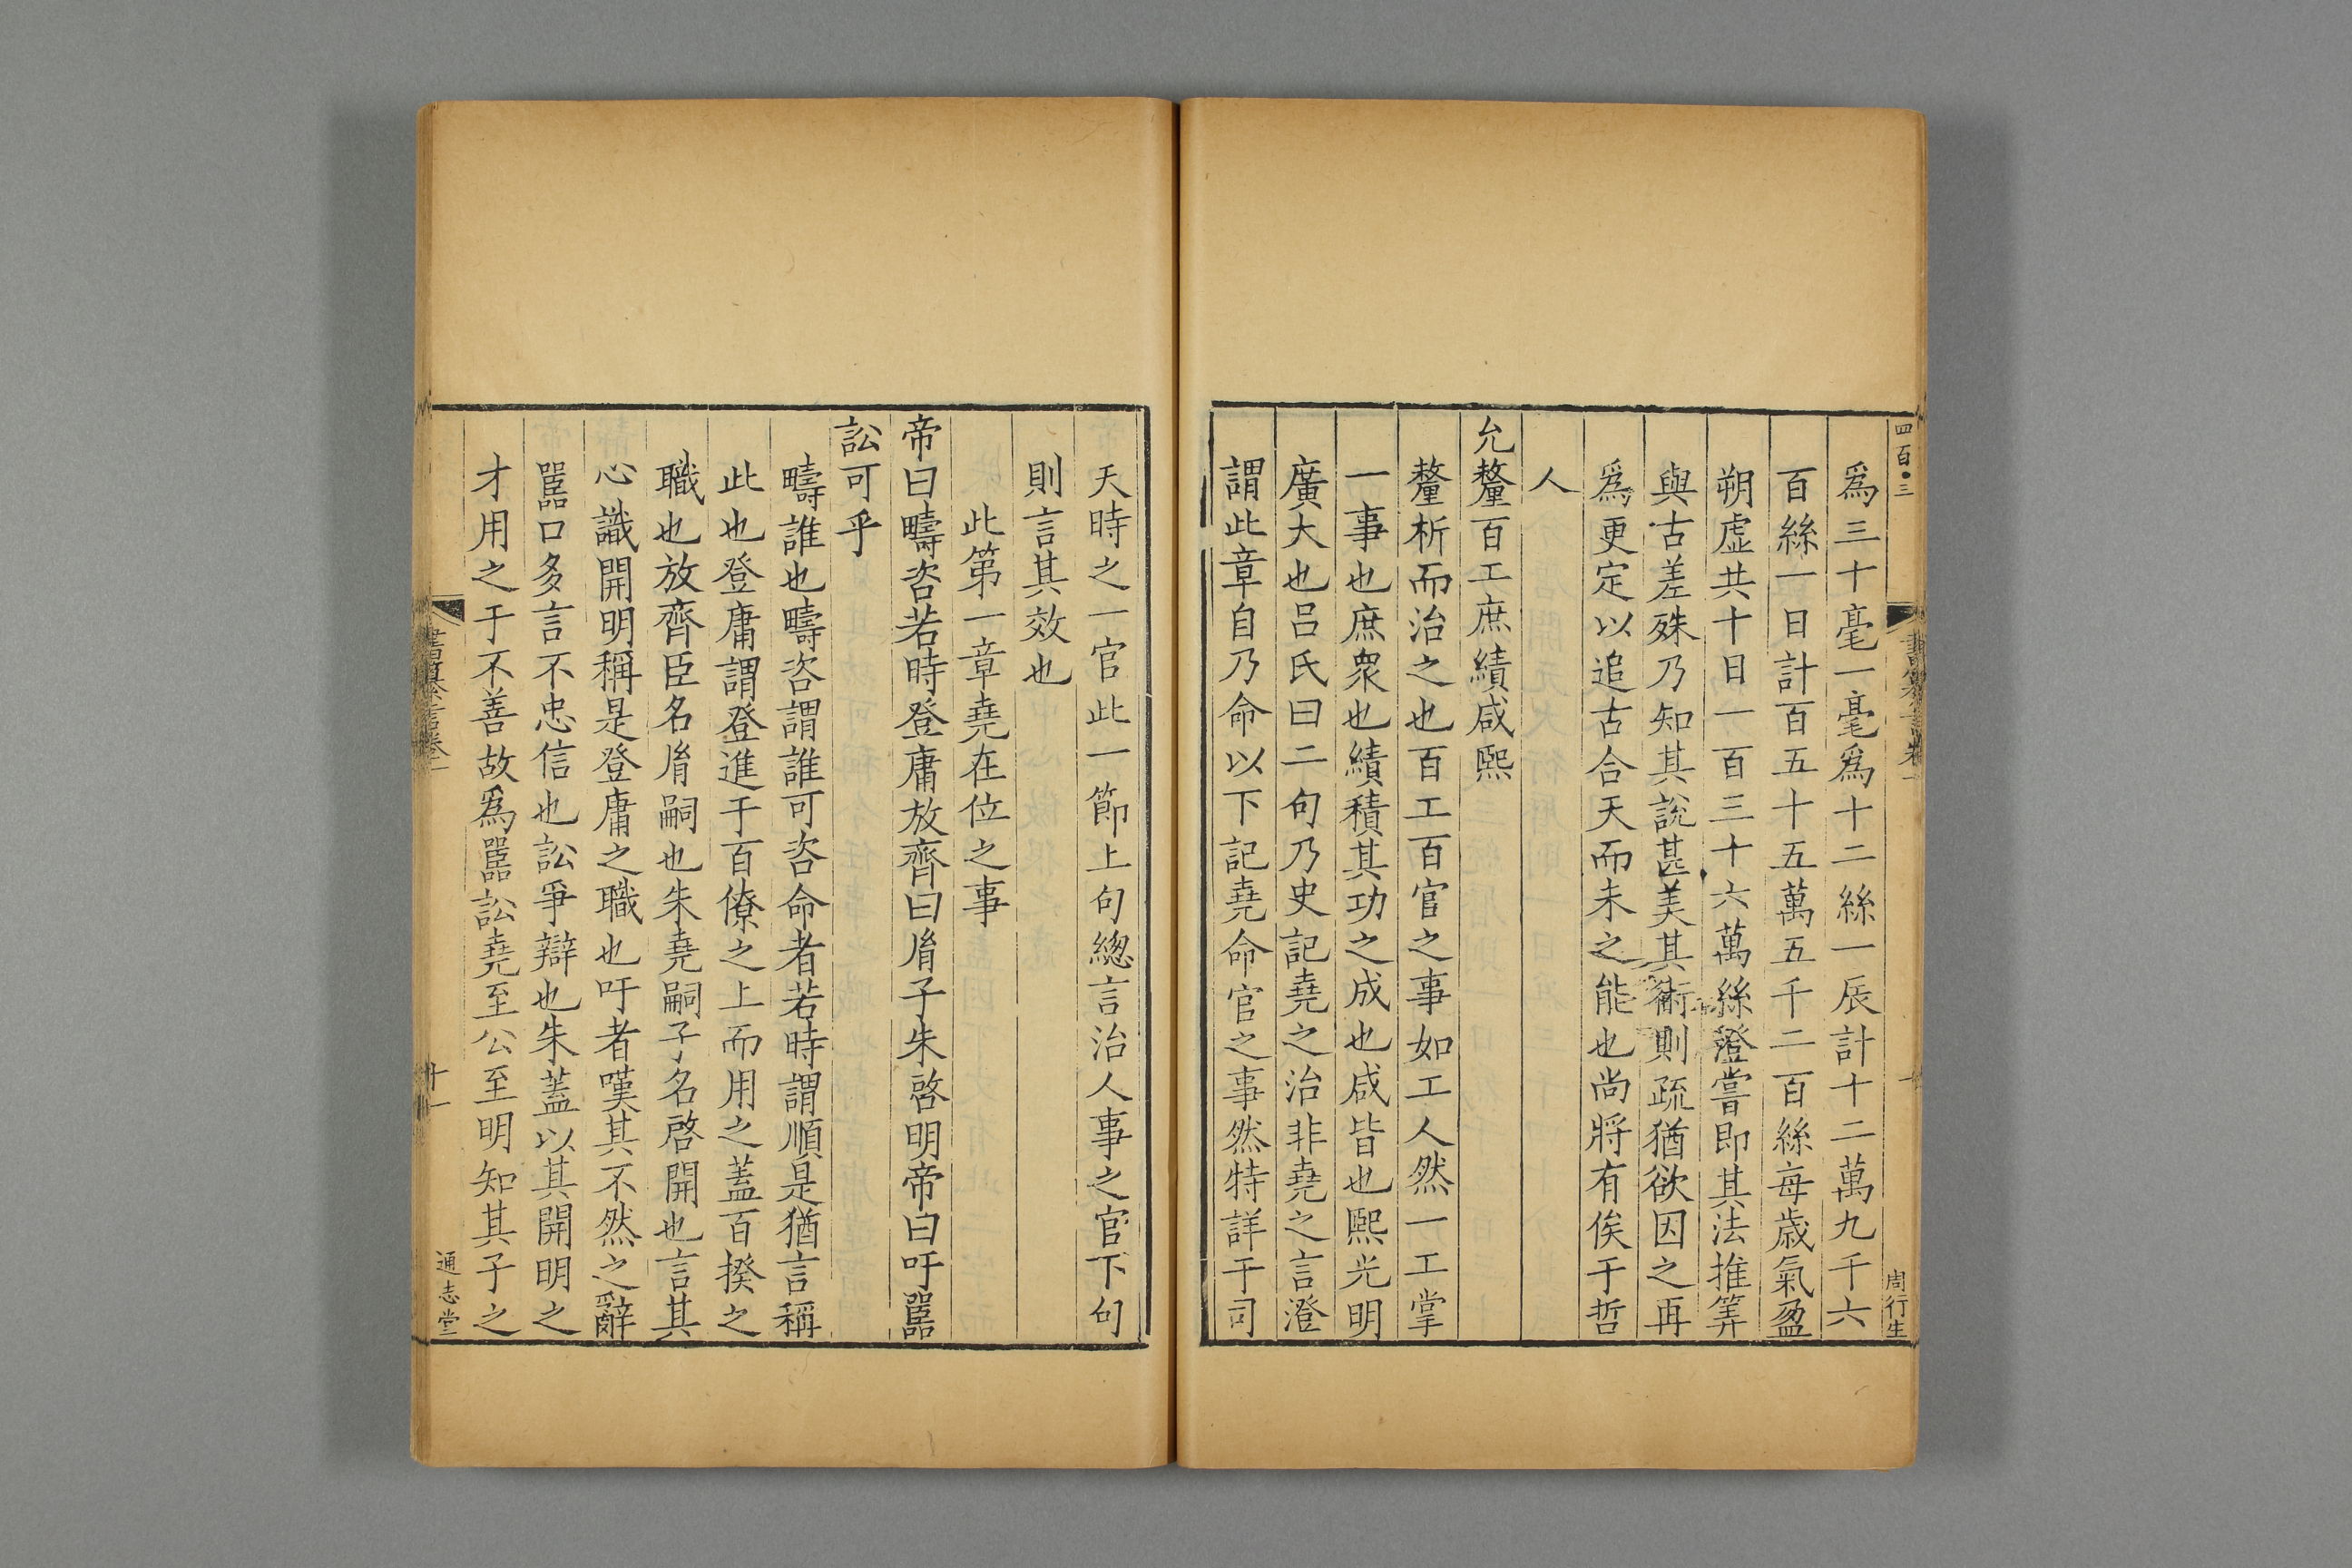 四百●三
書纂言卷一
周行生
爲三十毫一毫爲十二絲一辰計十二萬九千六
百絲一日計百五十五萬五千二百絲每歲氣盈
朔虛共十日一百三十六萬絲澄嘗即其法推筭
與古差殊乃知其說甚美其術則疏猶欲因之再
爲更定以追古合天而未之能也尚將有俟于哲
人
允釐百工庶績咸熙
釐析而治之也百工百官之事如工人然一工掌
一事也庶衆也績積其功之成也咸皆也熙光明
廣大也呂氏曰二句乃史記堯之治非堯之言澄
謂此章自乃命以下記堯命官之事然特詳于司
天時之一官此一節上句總言治人事之官下句
則言其效也
此第一章堯在位之事
帝曰疇咨若時登庸放齊曰胤子朱啓明帝曰吁嚚
訟可乎
疇誰也疇咨謂誰可咨命者若時謂順是猶言稱
此也登庸謂登進于百僚之上而用之蓋百揆之
職也放齊臣名胤嗣也朱堯嗣子名啓開也言其
心識開明稱是登庸之職也吁者嘆其不然之辭
嚚口多言不忠信也訟爭辯也朱蓋以其開明之
才用之于不善故爲嚚訟堯至公至明知其子之
書纂言卷一
十一
通志堂